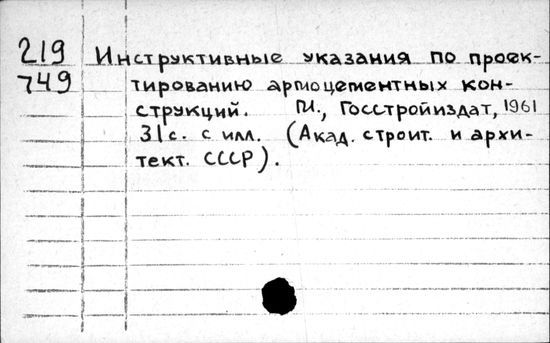 219 Инструктивные указания по проек-
749 тированию армоцементных кон-
струкций. М., Госстройиздат, 1961
31 с. с илл. (Акад. строит. и архи-
тект. СССР).